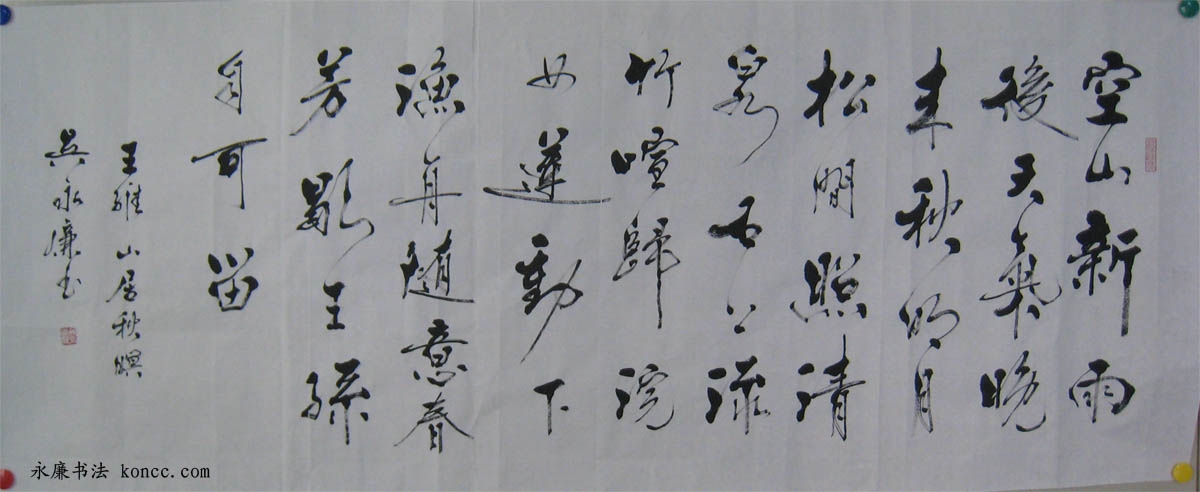 空山新雨
後天氣晚
来秋明月
松間照清
泉石上流
竹喧歸浣
女蓮動下
漁舟随意春
芳歇王孫
自可留
王維山居秋暝
吴永廉书
永廉书法 koncc.com